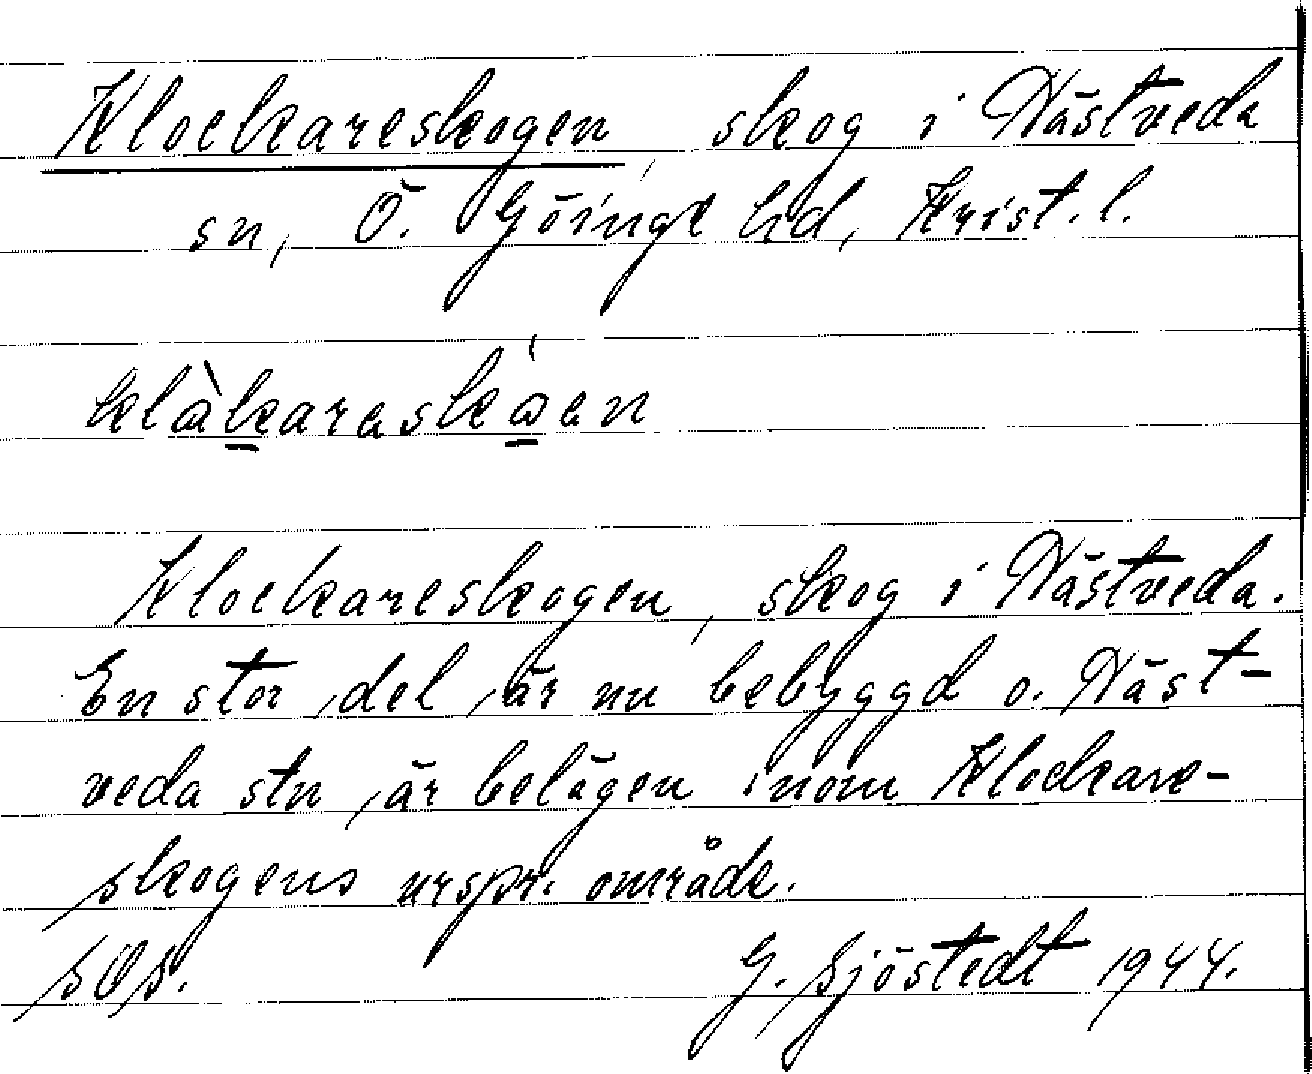 Klockareskogen, skog i Hästveda
sn, Ö. Göinge hd, Krist. l.
Klockareskogen, skog i Hästveda.
En stor del är nu bebyggd o. Häst-
veda stn är belägen inom Klockare-
skogens urspr. område.
G. Sjöstedt 1944.